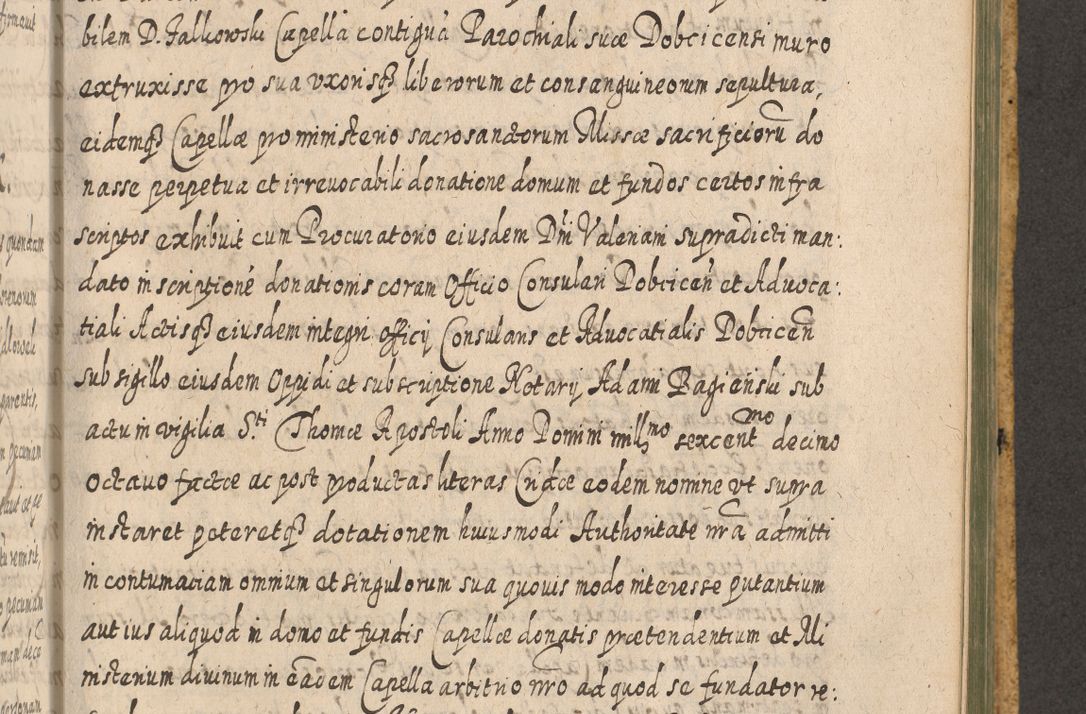 bilem D. Falkowski Capellã contiguã Parochiali suæ Dobcicensi muro
extruxisse pro sua vxorisq3 liberorum et consanguineorum sepultura,
eidemq3 Capellæ pro ministerio sacrosanctorum Missæ sacrificiorũ do
nasse perpetua et irreuocabili donatione domum et fundos certos infra
scriptos exhibuit cum Procuratorio eiusdem Dñi Valeriani supradicti man:
dato inscriptionẽ donationis coram Officio Consulari Dobciceñ et Aduoca:
tiali Actisq3 eiusdem integri officij Consularis et Aduocatialis Dobciceñ
sub sigillo eiusdem Oppidi et subscriptione Notarij Adami Bagienski sub
actum in vigilia S.ti Thomæ Apostoli Anno Domini mill3mo sexcentmo decimo
octauo factæ ac post productas literas Cridæ eodem nomine vt supra
instaret peteretq3 dotationem huiusmodi Authoritate nrã admitti
in contumaciam omnium et singulorum sua quouis modo interesse putantium
aut ius aliquod in domo et fundis Capellæ donatis prætendentium et Mi
nisterium diuinum in eadem Capella arbitrio nro ad quod se fundator re: